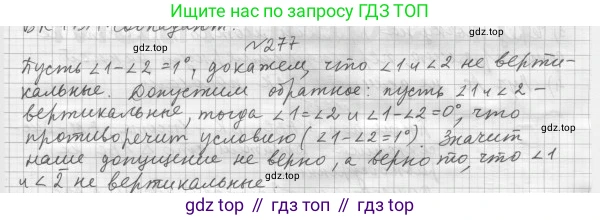 Ищите нас по запросу ГДЗ ТОП
№277
Пусть ∠1-∠2=1°, докажем, что ∠1 и ∠2 не верти-
кальные. Допустим обратное: пусть ∠1 и ∠2 -
вертикальные, тогда ∠1=∠2 и ∠1-∠2=0°, что
противоречит условию (∠1-∠2=1°). Значит
наше допущение не верно, а верно то, что ∠1
и ∠2 не вертикальные.
Ищите нас по запросу ГДЗ ТОП